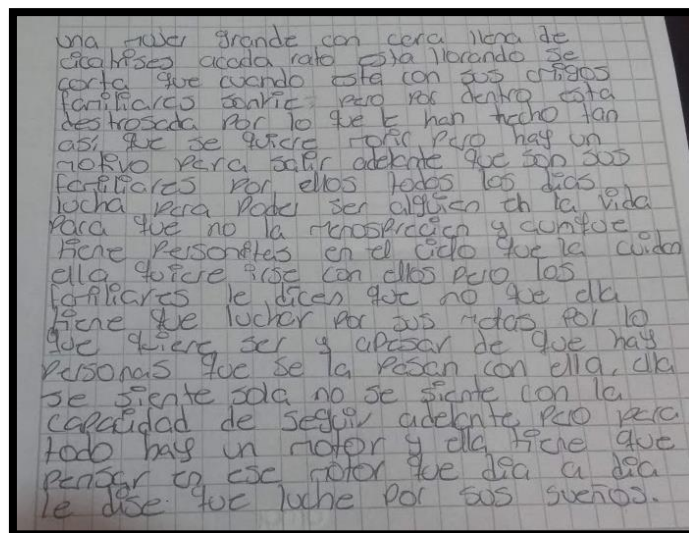 una mujer grande con cara llena de
cicatrises acada rato esta llorando se
corta que cuando esta con sus amigos
familiares sonrie pero por dentro esta
destrosada por lo que le han hecho tan
asi que se quiere morir pero hay un
motivo para salir adelante que son sus
familiares por ellos todos los dias
lucha para poder ser alguien en la vida
para que no la menosprecien y aunque
tiene personitas en el cielo que la cuidan
ella quiere irse con ellos pero los
familiares le dicen que no que ella
tiene que luchar por sus metas por lo
que quiere ser y apesar de que hay
personas que se la pasan con ella, ella
se siente sola no se siente con la
capacidad de seguir adelante pero para
todo hay un motor y ella tiene que
pensar en ese motor que dia a dia
le dise que luche por sus sueños.